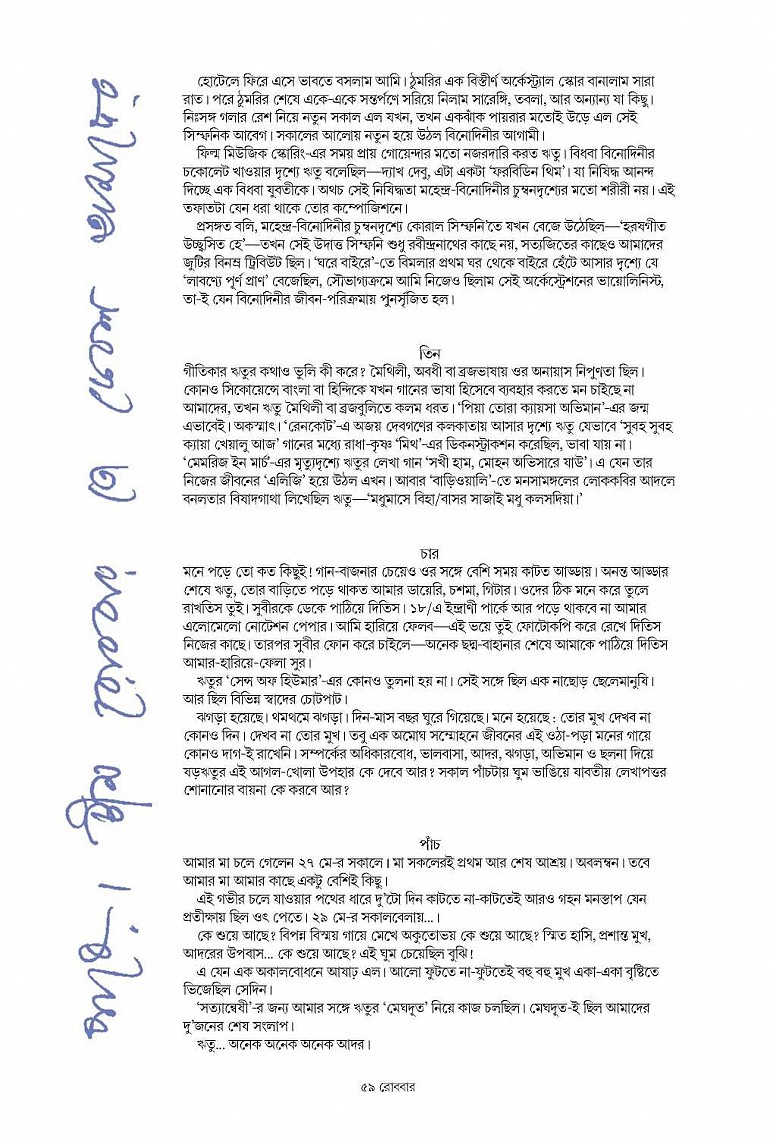 হোটেলে ফিরে এসে ভাবতে বসলাম আমি। ঠুমরির এক বিস্তীর্ণ অর্কেস্ট্রাল স্কোর বানালাম সারা
রাত। পরে ঠুমরির শেষে একে-একে সন্তর্পণে সরিয়ে নিলাম সারেঙ্গি, তবলা, আর অন্যান্য যা কিছু।
নিঃসঙ্গ গলার রেশ নিয়ে নতুন সকাল এল যখন, তখন একঝাঁক পায়রার মতোই উড়ে এল সেই
সিম্ফনিক আবেগ। সকালের আলোয় নতুন হয়ে উঠল বিনোদিনীর আগামী।
ফিল্ম মিউজিক স্কোরিং-এর সময় প্রায় গোয়েন্দার মতো নজরদারি করত ঋতু। বিধবা বিনোদিনীর
চকোলেট খাওয়ার দৃশ্যে ঋতু বলেছিল—দ্যাখ দেবু, এটা একটা ‘ফরবিডিন থিম’। যা নিষিদ্ধ আনন্দ
দিচ্ছে এক বিধবা যুবতীকে। অথচ সেই নিষিদ্ধতা মহেন্দ্র-বিনোদিনীর চুম্বনদৃশ্যের মতো শরীরী নয়। এই
তফাতটা যেন ধরা থাকে তোর কম্পোজিশনে।
প্রসঙ্গত বলি, মহেন্দ্র-বিনোদিনীর চুম্বনদৃশ্যে কোরাল সিম্ফনি’তে যখন বেজে উঠেছিল—‘হরষগীত
উচ্ছ্বসিত হে’—তখন সেই উদাত্ত সিম্ফনি শুধু রবীন্দ্রনাথের কাছে নয়, সত্যজিতের কাছেও আমাদের
জুটির বিনম্র ট্রিবিউট ছিল। ‘ঘরে বাইরে’-তে বিমলার প্রথম ঘর থেকে বাইরে হেঁটে আসার দৃশ্যে যে
‘লাবণ্যে পূর্ণ প্রাণ’ বেজেছিল, সৌভাগ্যক্রমে আমি নিজেও ছিলাম সেই অর্কেস্ট্রেশনের ভায়োলিনিস্ট,
তা-ই যেন বিনোদিনীর জীবন-পরিক্রমায় পুনর্সৃজিত হল।
তিন
গীতিকার ঋতুর কথাও ভুলি কী করে? মৈথিলী, অবধী বা ব্রজভাষায় ওর অনায়াস নিপুণতা ছিল।
কোনও সিকোয়েন্সে বাংলা বা হিন্দিকে যখন গানের ভাষা হিসেবে ব্যবহার করতে মন চাইছে না
আমাদের, তখন ঋতু মৈথিলী বা ব্রজবুলিতে কলম ধরত। ‘পিয়া তোরা ক্যায়সা অভিমান’-এর জন্ম
এভাবেই। অকস্মাৎ। ‘রেনকোট’-এ অজয় দেবগণের কলকাতায় আসার দৃশ্যে ঋতু যেভাবে ‘সুবহ সুবহ
ক্যায়া খেয়ালু আজ’ গানের মধ্যে রাধা-কৃষ্ণ ‘মিথ’-এর ডিকনস্ট্রাকশন করেছিল, ভাবা যায় না।
‘মেমরিজ ইন মার্চ’-এর মৃত্যুদৃশ্যে ঋতুর লেখা গান ‘সখী হাম, মোহন অভিসারে যাউ’। এ যেন তার
নিজের জীবনের ‘এলিজি’ হয়ে উঠল এখন। আবার ‘বাড়িওয়ালি’-তে মনসামঙ্গলের লোককবির আদলে
বনলতার বিষাদগাথা লিখেছিল ঋতু—‘মধুমাসে বিহা/বাসর সাজাই মধু কলসদিয়া।’
চার
মনে পড়ে তো কত কিছুই! গান-বাজনার চেয়েও ওর সঙ্গে বেশি সময় কাটত আড্ডায়। অনন্ত আড্ডার
শেষে ঋতু, তোর বাড়িতে পড়ে থাকত আমার ডায়েরি, চশমা, গিটার। ওদের ঠিক মনে করে তুলে
রাখতিস তুই। সুবীরকে ডেকে পাঠিয়ে দিতিস। ১৮/এ ইন্দ্রাণী পার্কে আর পড়ে থাকবে না আমার
এলোমেলো নোটেশন পেপার। আমি হারিয়ে ফেলব—এই ভয়ে তুই ফোটোকপি করে রেখে দিতিস
নিজের কাছে। তারপর সুবীর ফোন করে চাইলে—অনেক ছদ্ম-বাহানার শেষে আমাকে পাঠিয়ে দিতিস
আমার-হারিয়ে-ফেলা সুর।
ঋতুর ‘সেন্স অফ হিউমার’-এর কোনও তুলনা হয় না। সেই সঙ্গে ছিল এক নাছোড় ছেলেমানুষি।
আর ছিল বিভিন্ন স্বাদের চোটপাট।
ঝগড়া হয়েছে। থমথমে ঝগড়া। দিন-মাস বছর ঘুরে গিয়েছে। মনে হয়েছে : তোর মুখ দেখব না
কোনও দিন। দেখব না তোর মুখ। তবু এক অমোঘ সম্মোহনে জীবনের এই ওঠা-পড়া মনের গায়ে
কোনও দাগ-ই রাখেনি। সম্পর্কের অধিকারবোধ, ভালবাসা, আদর, ঝগড়া, অভিমান ও ছলনা দিয়ে
ষড়ঋতুর এই আগল-খোলা উপহার কে দেবে আর? সকাল পাঁচটায় ঘুম ভাঙিয়ে যাবতীয় লেখাপত্তর
শোনানোর বায়না কে করবে আর?
পাঁচ
আমার মা চলে গেলেন ২৭ মে-র সকালে। মা সকলেরই প্রথম আর শেষ আশ্রয়। অবলম্বন। তবে
আমার মা আমার কাছে একটু বেশিই কিছু।
এই গভীর চলে যাওয়ার পথের ধারে দু’টো দিন কাটতে না-কাটতেই আরও গহন মনস্তাপ যেন
প্রতীক্ষায় ছিল ওৎ পেতে। ২৯ মে-র সকালবেলায়...।
কে শুয়ে আছে? বিপন্ন বিস্ময় গায়ে মেখে অকুতোভয় কে শুয়ে আছে? স্মিত হাসি, প্রশান্ত মুখ,
আদরের উপবাস... কে শুয়ে আছে? এই ঘুম চেয়েছিল বুঝি!
এ যেন এক অকালবোধনে আষাঢ় এল। আলো ফুটতে না-ফুটতেই বহু বহু মুখ একা-একা বৃষ্টিতে
ভিজেছিল সেদিন।
‘সত্যান্বেষী’-র জন্য আমার সঙ্গে ঋতুর ‘মেঘদূত’ নিয়ে কাজ চলছিল। মেঘদূত-ই ছিল আমাদের
দু’জনের শেষ সংলাপ।
ঋতু... অনেক অনেক অনেক আদর।
৫৯ রোববার